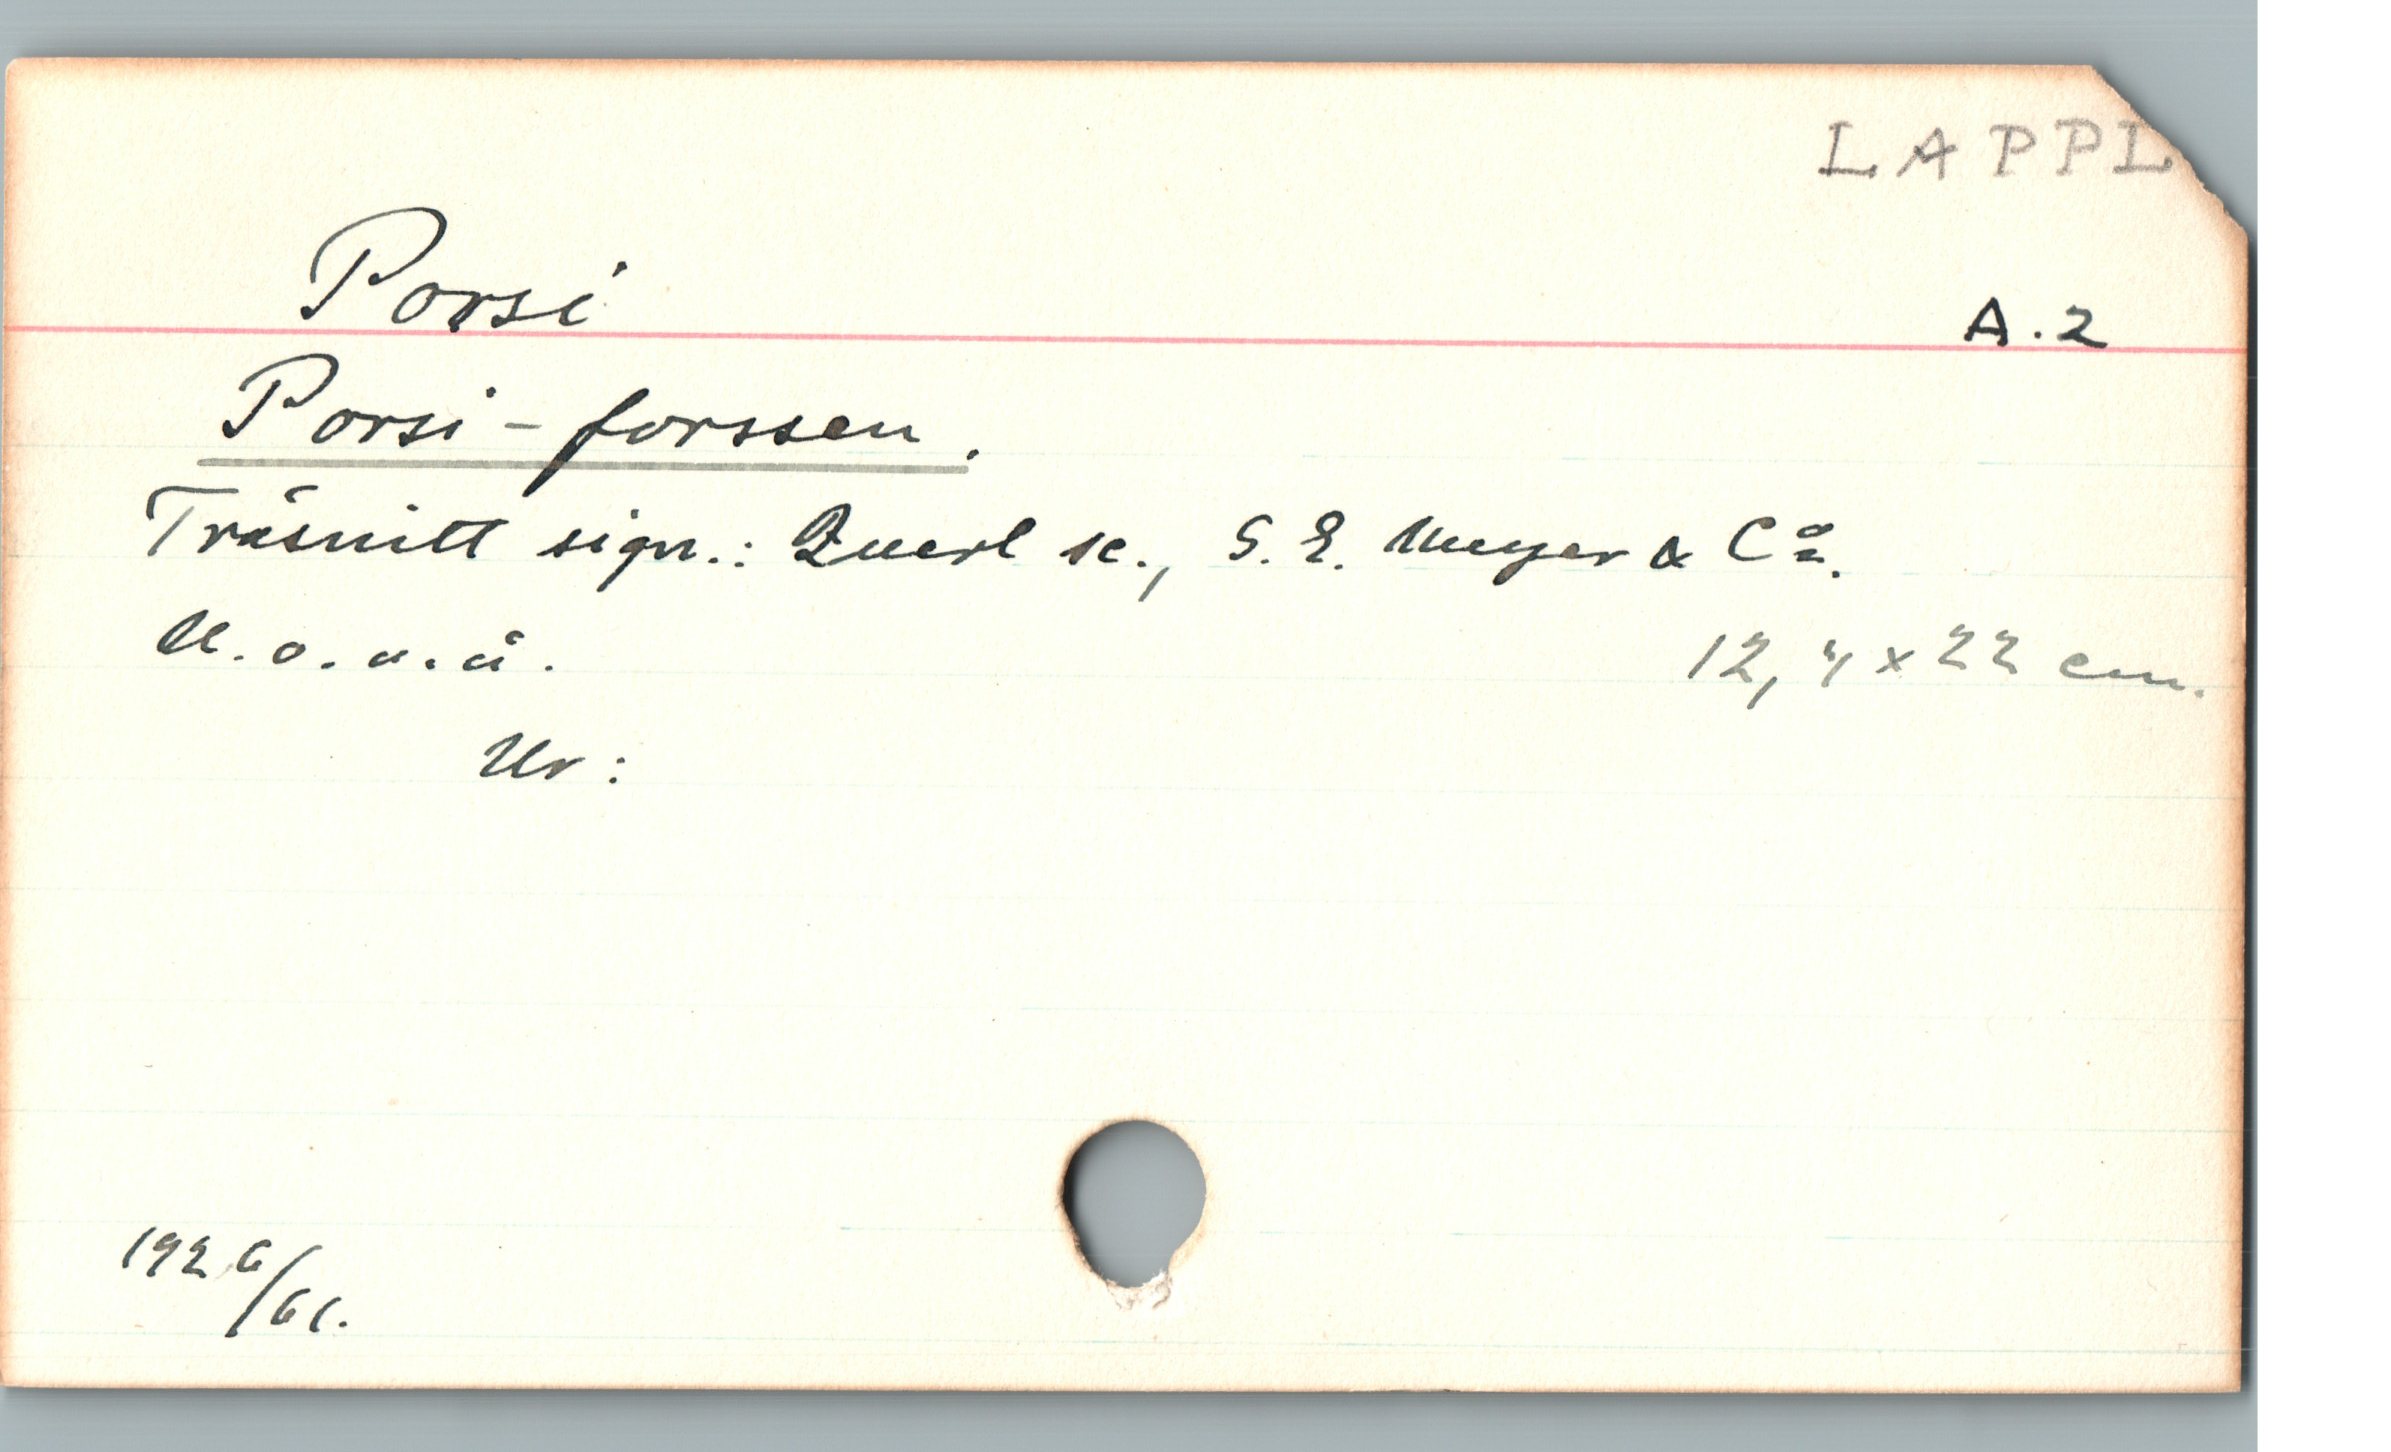 LAPPL
Porsi
A.2
Porsi-forssen.
Träsnitt sign.: Querl sc., S. E. Meyer & Co.
U. o. u. å.
12,4 x 22 cm.
Ur:
1926/61.